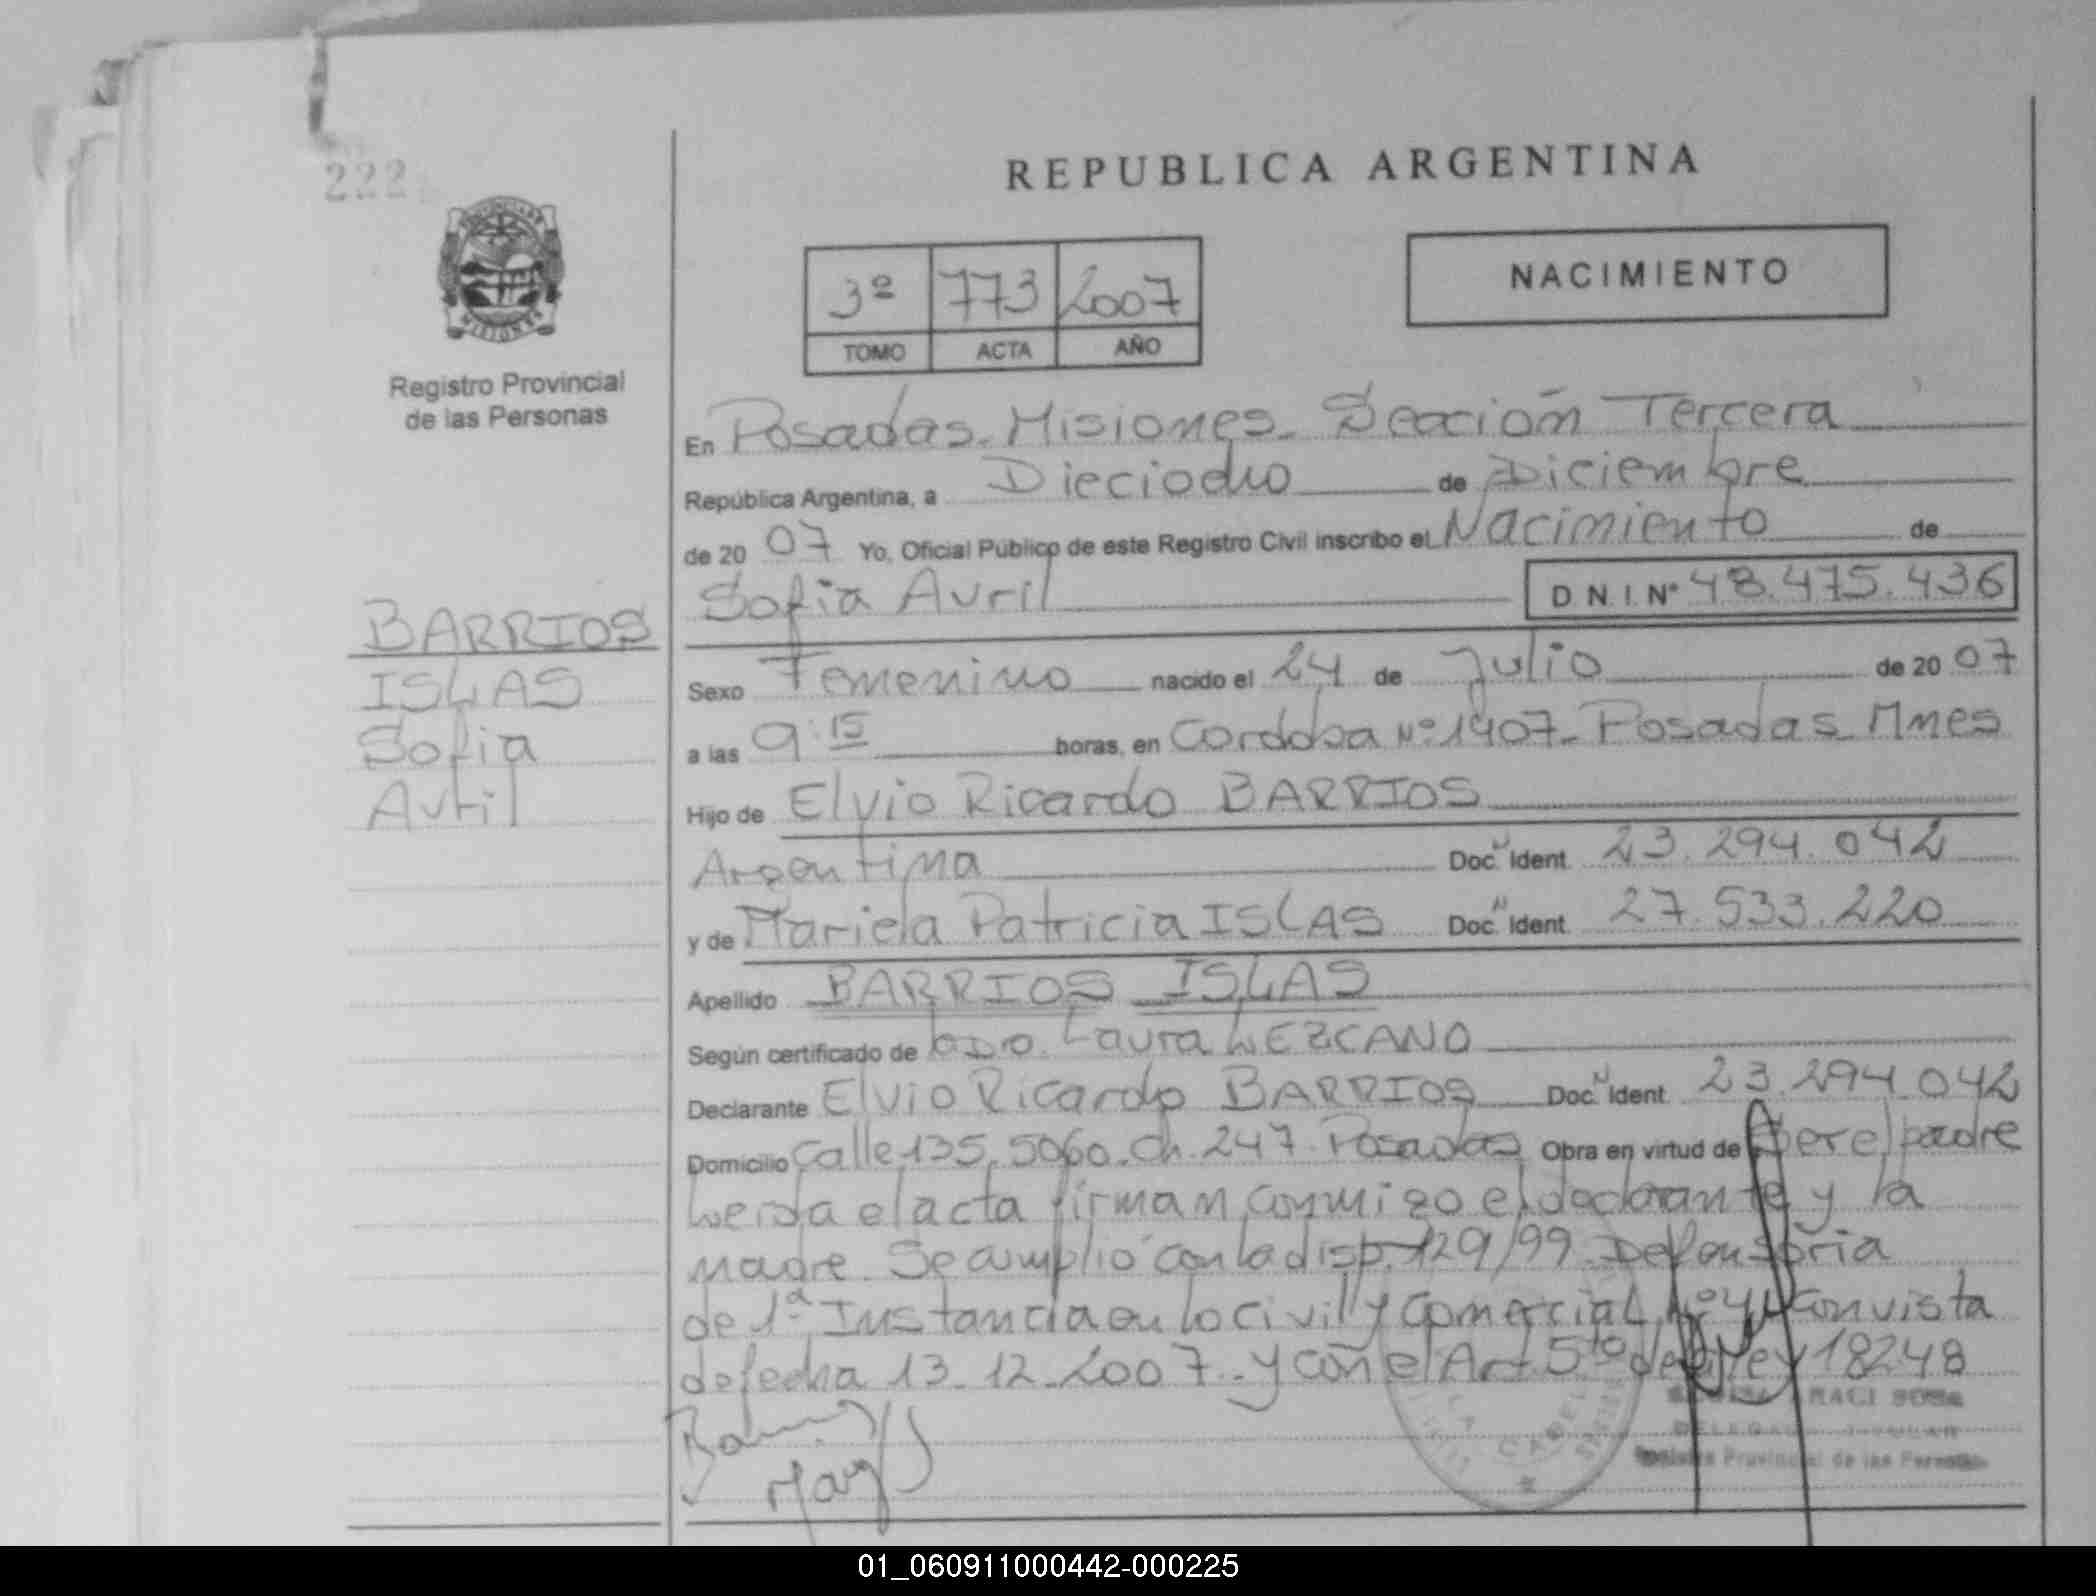 222
REPUBLICA ARGENTINA
3º 773 2007
TOMO ACTA AÑO
NACIMIENTO
MISIONES
Registro Provincial
de las Personas
En Posadas. Misiones. Sección Tercera
República Argentina, a Dieciocho de Diciembre
de 20 07 Yo, Oficial Público de este Registro Civil inscribo el Nacimiento de
Sofia Avril D.N.I. Nº 48.475.436
BARRIOS
ISLAS
Sofia
Avril
Sexo Femenino nacido el 24 de Julio de 20 07
a las 9:15 horas, en Cordoba Nº 1407. Posadas Mnes
Hijo de Elvio Ricardo BARRIOS
Argentina Doc. Ident. 23.294.042
y de Mariela Patricia ISLAS Doc. Ident. 27.533.220
Apellido BARRIOS ISLAS
Según certificado de Laura LEZCANO
Declarante Elvio Ricardo BARRIOS Doc. Ident. 23.294.042
Domicilio Calle 135. 5060. Ch. 247. Posadas Obra en virtud de ser el padre
Leida el acta firman conmigo el declarante y la
madre. Se amplió con la disp. 129/99. Defensoria
de 1ª Instancia en lo civil y Comercial Nº 4 con vista
de fecha 13-12-2007. y con el Art 5to de ley 18248
Registro Provincial de las Personas
01_060911000442-000225